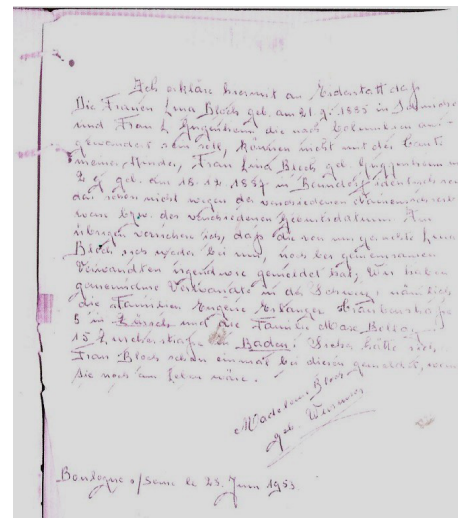 Ich erkläre hiermit an Eidesstatt daß
Die Frauen Lina Bloch geb. am 21. 9. 1885 in
und Frau L. Guggenheim die nach Columbien aus-
gewandert sein soll, können nicht mit der Tante
meiner Kinder, Frau Lina Bloch geb. Guggenheim
geb. am 18.12.1887 in identisch sein
das schon nicht wegen der verschiedenen
bzw. der verschiedenen Geburtsdatum. Im
übrigen versichere ich, daß die von mir gesuchte Lina
Bloch sich weder bei uns, noch bei gemeinsamen
Verwandten irgendwie gemeldet hat; Wir haben
gemeinsame Verwandte in der Schweiz: nämlich
die Familien Eugène Erlanger
5 in Zürich und die Familie Max
15 in Baden. Sicher hätte sich
Frau Bloch schon einmal bei diesen gemeldet, wenn
sie noch am Leben wäre.
Madeleine Bloch
geb.
Boulogne s/Seine le 23. Juin 1953